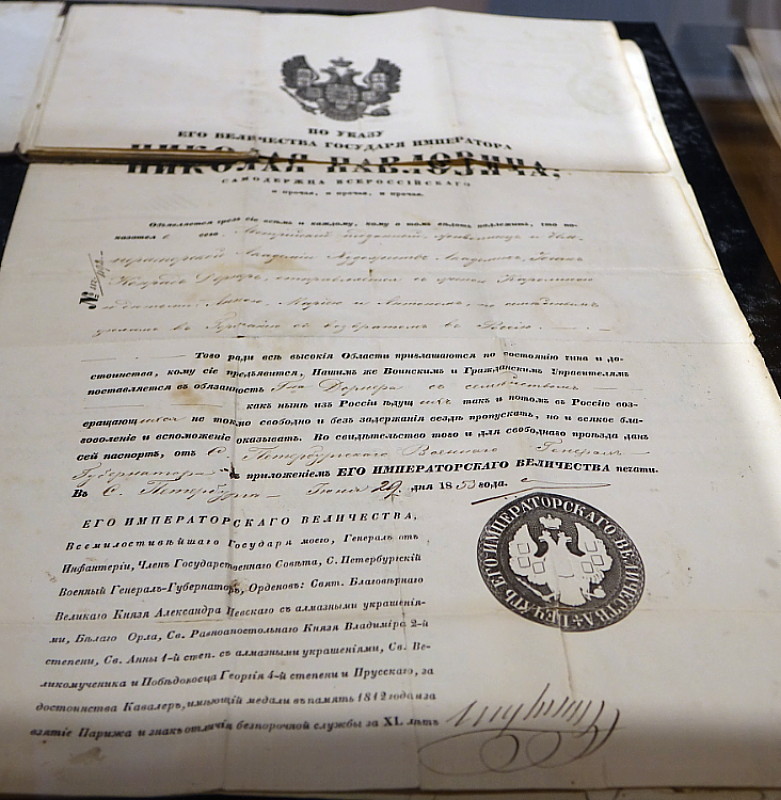 ПО УКАЗУ
ЕГО ВЕЛИЧЕСТВА ГОСУДАРЯ ИМПЕРАТОРА
НИКОЛАЯ ПАВЛОВИЧА,
САМОДЕРЖЦА ВСЕРОССІЙСКАГО
и прочая, и прочая, и прочая.
Объявляется чрезъ сіе всѣмъ и каждому, кому о томъ вѣдать надлежитъ, что по-
казатель сего
Академіи Художествъ
№
отправляется съ женою
и дѣтьми
въ съ возвратомъ въ Россію.
Того ради всѣ высокія Области приглашаются по состоянію чина и до-
стоинства, кому сіе предъявится, Нашимъ же Воинскимъ и Гражданскимъ Управителямъ
поставляется въ обязанность съ семействомъ
какъ нынѣ изъ Россіи ѣдущихъ такъ и потомъ въ Россію воз-
вращающихся не токмо свободно и безъ задержанія вездѣ пропускать, но и всякое бла-
говоленіе и вспоможеніе оказывать. Во свидѣтельство того и для свободнаго проѣзда данъ
сей паспортъ, отъ С. Петербургскаго Военнаго Генералъ-
Губернатора съ приложеніемъ ЕГО ИМПЕРАТОРСКАГО ВЕЛИЧЕСТВА печати.
Въ С. Петербургѣ Іюня 29 дня 1853 года.
ЕГО ИМПЕРАТОРСКАГО ВЕЛИЧЕСТВА,
Всемилостивѣйшаго Государя моего, Генералъ отъ
Инфантеріи, Членъ Государственнаго Совѣта, С. Петербургскій
Военный Генералъ-Губернаторъ, Орденовъ: Свят. Благовѣрнаго
Великаго Князя Александра Невскаго съ алмазными украшенія-
ми, Бѣлаго Орла, Св. Равноапостольнаго Князя Владиміра 2-й
степени, Св. Анны 1-й степ. съ алмазными украшеніями, Св. Ве-
ликомученика и Побѣдоносца Георгія 4-й степени и Прусскаго, за
достоинства Кавалеръ, имѣющій медали въ память 1812 года и за
взятіе Парижа и знакъ отличія безпорочной службы за XL лѣтъ
ПЕЧАТЬ ЕГО ИМПЕРАТОРСКАГО ВЕЛИЧЕСТВА